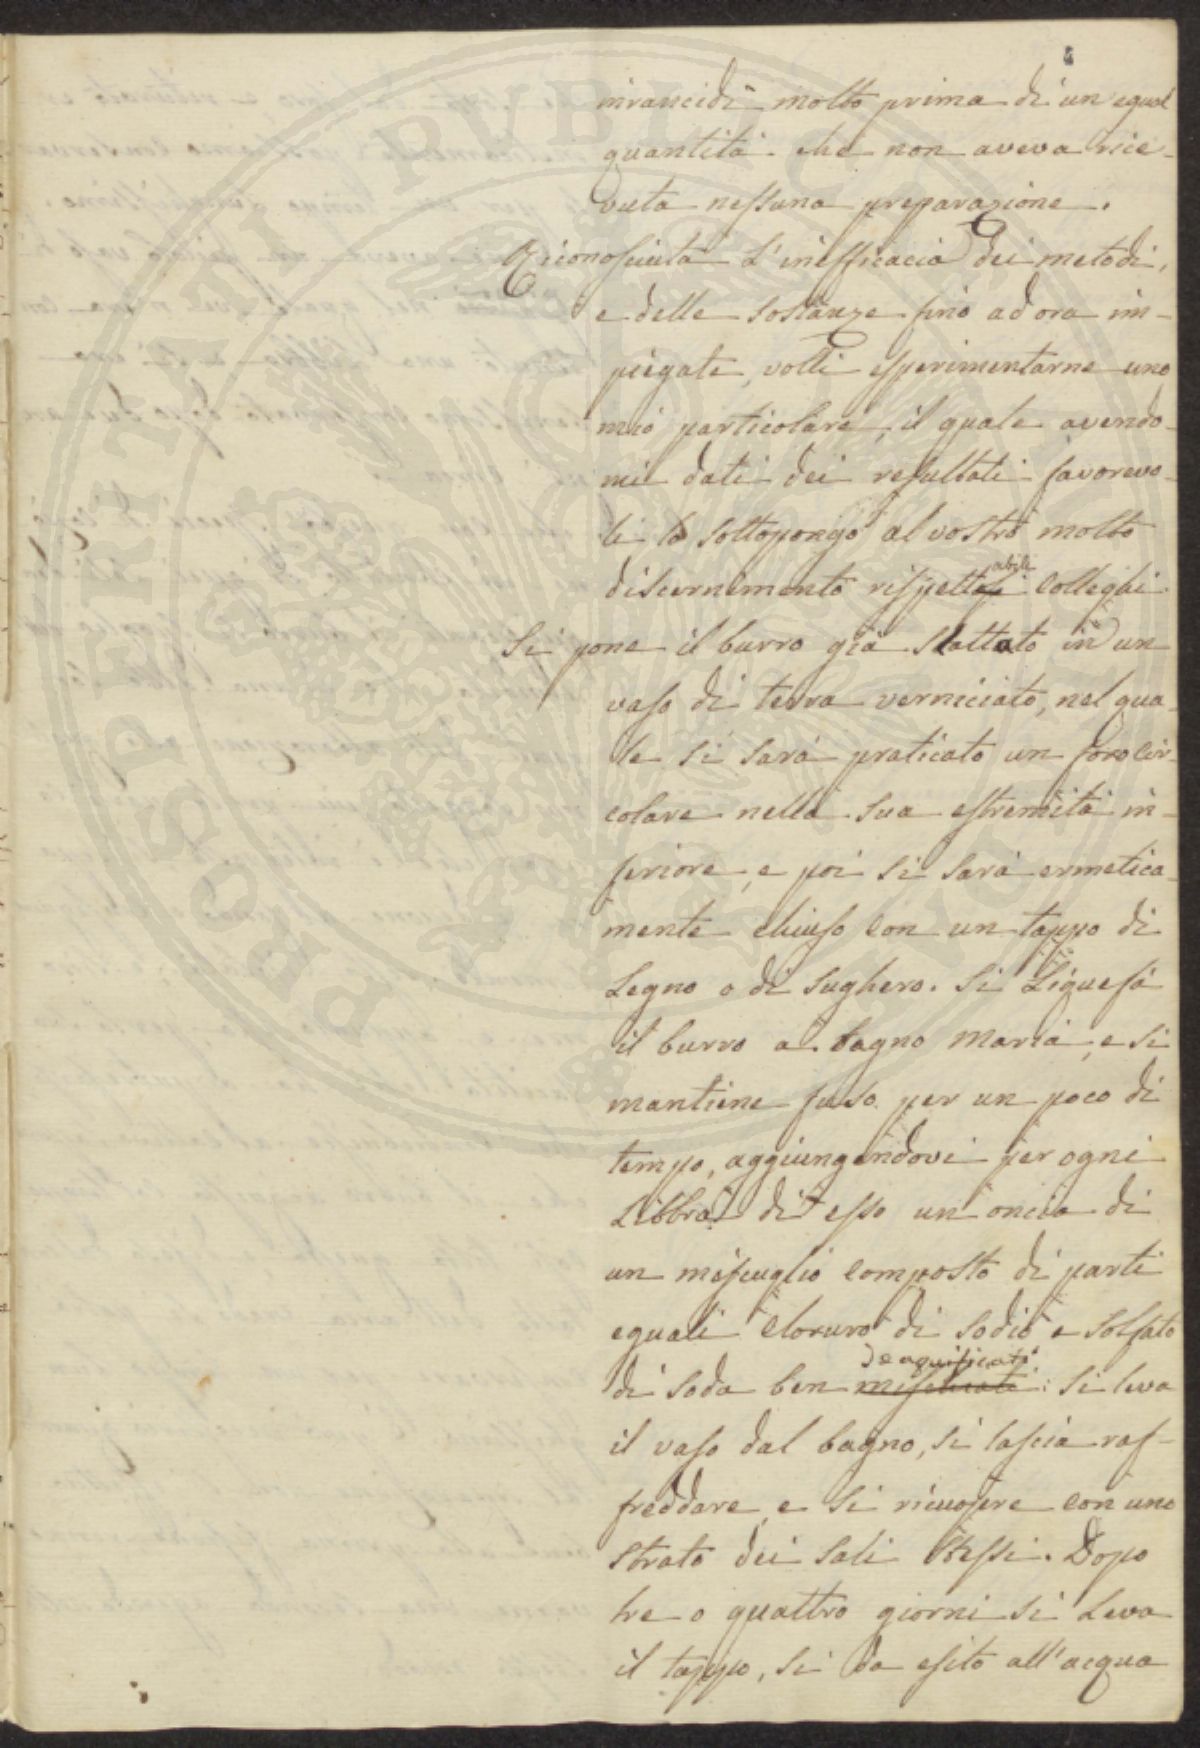 4
inrancidì molto prima di un egual
quantità che non aveva rice-
vuta nessuna preparazione.
Riconosciuta l'inefficacia dei metodi,
e delle sostanze fino ad ora im-
piegate, volli esperimentarne uno
mio particolare, il quale avendo-
mi dati dei resultati favorevo-
li lo sottopongo al vostro molto
abili
discernimento rispetta Colleghi.
Si pone il burro già slattato in un
vaso di terra verniciato, nel qua-
le si sarà praticato un foro cir-
colare nella sua estremità in-
feriore, e poi si sarà ermetica-
mente chiuso con un tappo di
Legno o di sughero. Si Liquefà
il burro a bagno maria, e si
mantiene fuso per un poco di
tempo, aggiungendovi per ogni
Libbra di esso un oncia di
un miscuglio composto di parti
eguali cloruro di sodio e solfato
deaquificati
di soda ben mischiati: si leva
il vaso dal bagno, si lascia raf-
freddare, e si ricuopre con uno
strato dei sali stessi. Dopo
tre o quattro giorni si Leva
il tappo, si da esito all'acqua
PROSPERITATI PUBLICAE